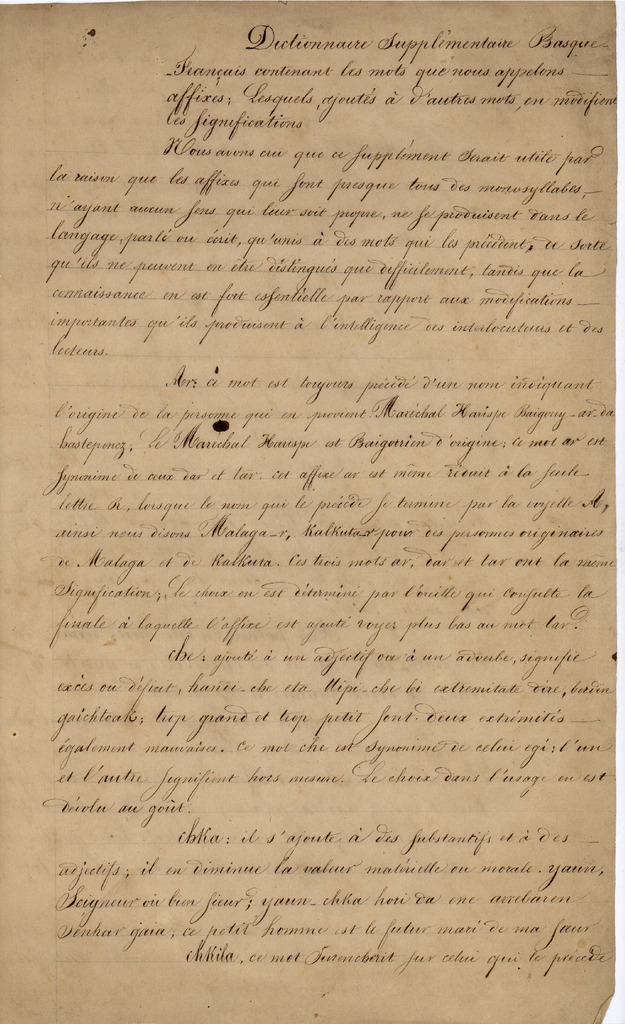 Dictionnaire Supplémentaire Basque-
-Français contenant les mots que nous appelons
affixes; Lesquels, ajoutés à d'autres mots, en modifient
les significations
Nous avons cru que ce supplément serait utile par
la raison que les affixes qui sont presque tous des monosyllabes,
n'ayant aucun sens qui leur soit propre, ne se produisent dans le
langage, parlé ou écrit, qu'unis à des mots qui les précédent, de sorte
qu'ils ne peuvent en être distingués que difficilement, tandis que la
connaissance en est fort essentielle par rapport aux modifications
importantes qu'ils produisent à l'intelligence des interlocuteurs et des
lecteurs.
Ar: ce mot est toujours précédé d'un nom indiquant
l'origine de la personne qui en provient Maréchal Harispe Baigorry-ar-da
hastepenez, Le Maréchal Harispe est Baigorrien d'origine; ce mot ar est
synonime de ceux dar et tar. cet affixe ar est même réduit à la seule
lettre R, lorsque le nom qui le précède se termine par la voyelle A,
ainsi nous disons Malaga-r, Kalkuta-r pour des personnes originaires
de Malaga et de Kalkuta. Ces trois mots ar, dar et tar ont la même
signification; Le choix en est déterminé par l'oreille qui consulte la
finale à laquelle l'affixe est ajouté voyez plus bas au mot tar.
che: ajouté à un adjectif ou à un adverbe, signifie
excès ou déficit, handi-che eta ttipi-che bi extremitate dire, berdin
gaichtoak; trop grand et trop petit sont deux extrémités
également mauvaises. ce mot che est synonime de celui egi: l'un
et l'autre signifient hors mesure. Le choix dans l'usage en est
dévolu au goût.
chka: il s'ajoute à des substantifs et à des
adjectifs; il en diminue la valeur matérielle ou morale. yaun,
Seigneur ou bien sieur; yaun-chka hori da ene arrebaren
senhar gaia, ce petit homme est le futur mari de ma sœur
chkila, ce mot surenchérit sur celui qui le précède